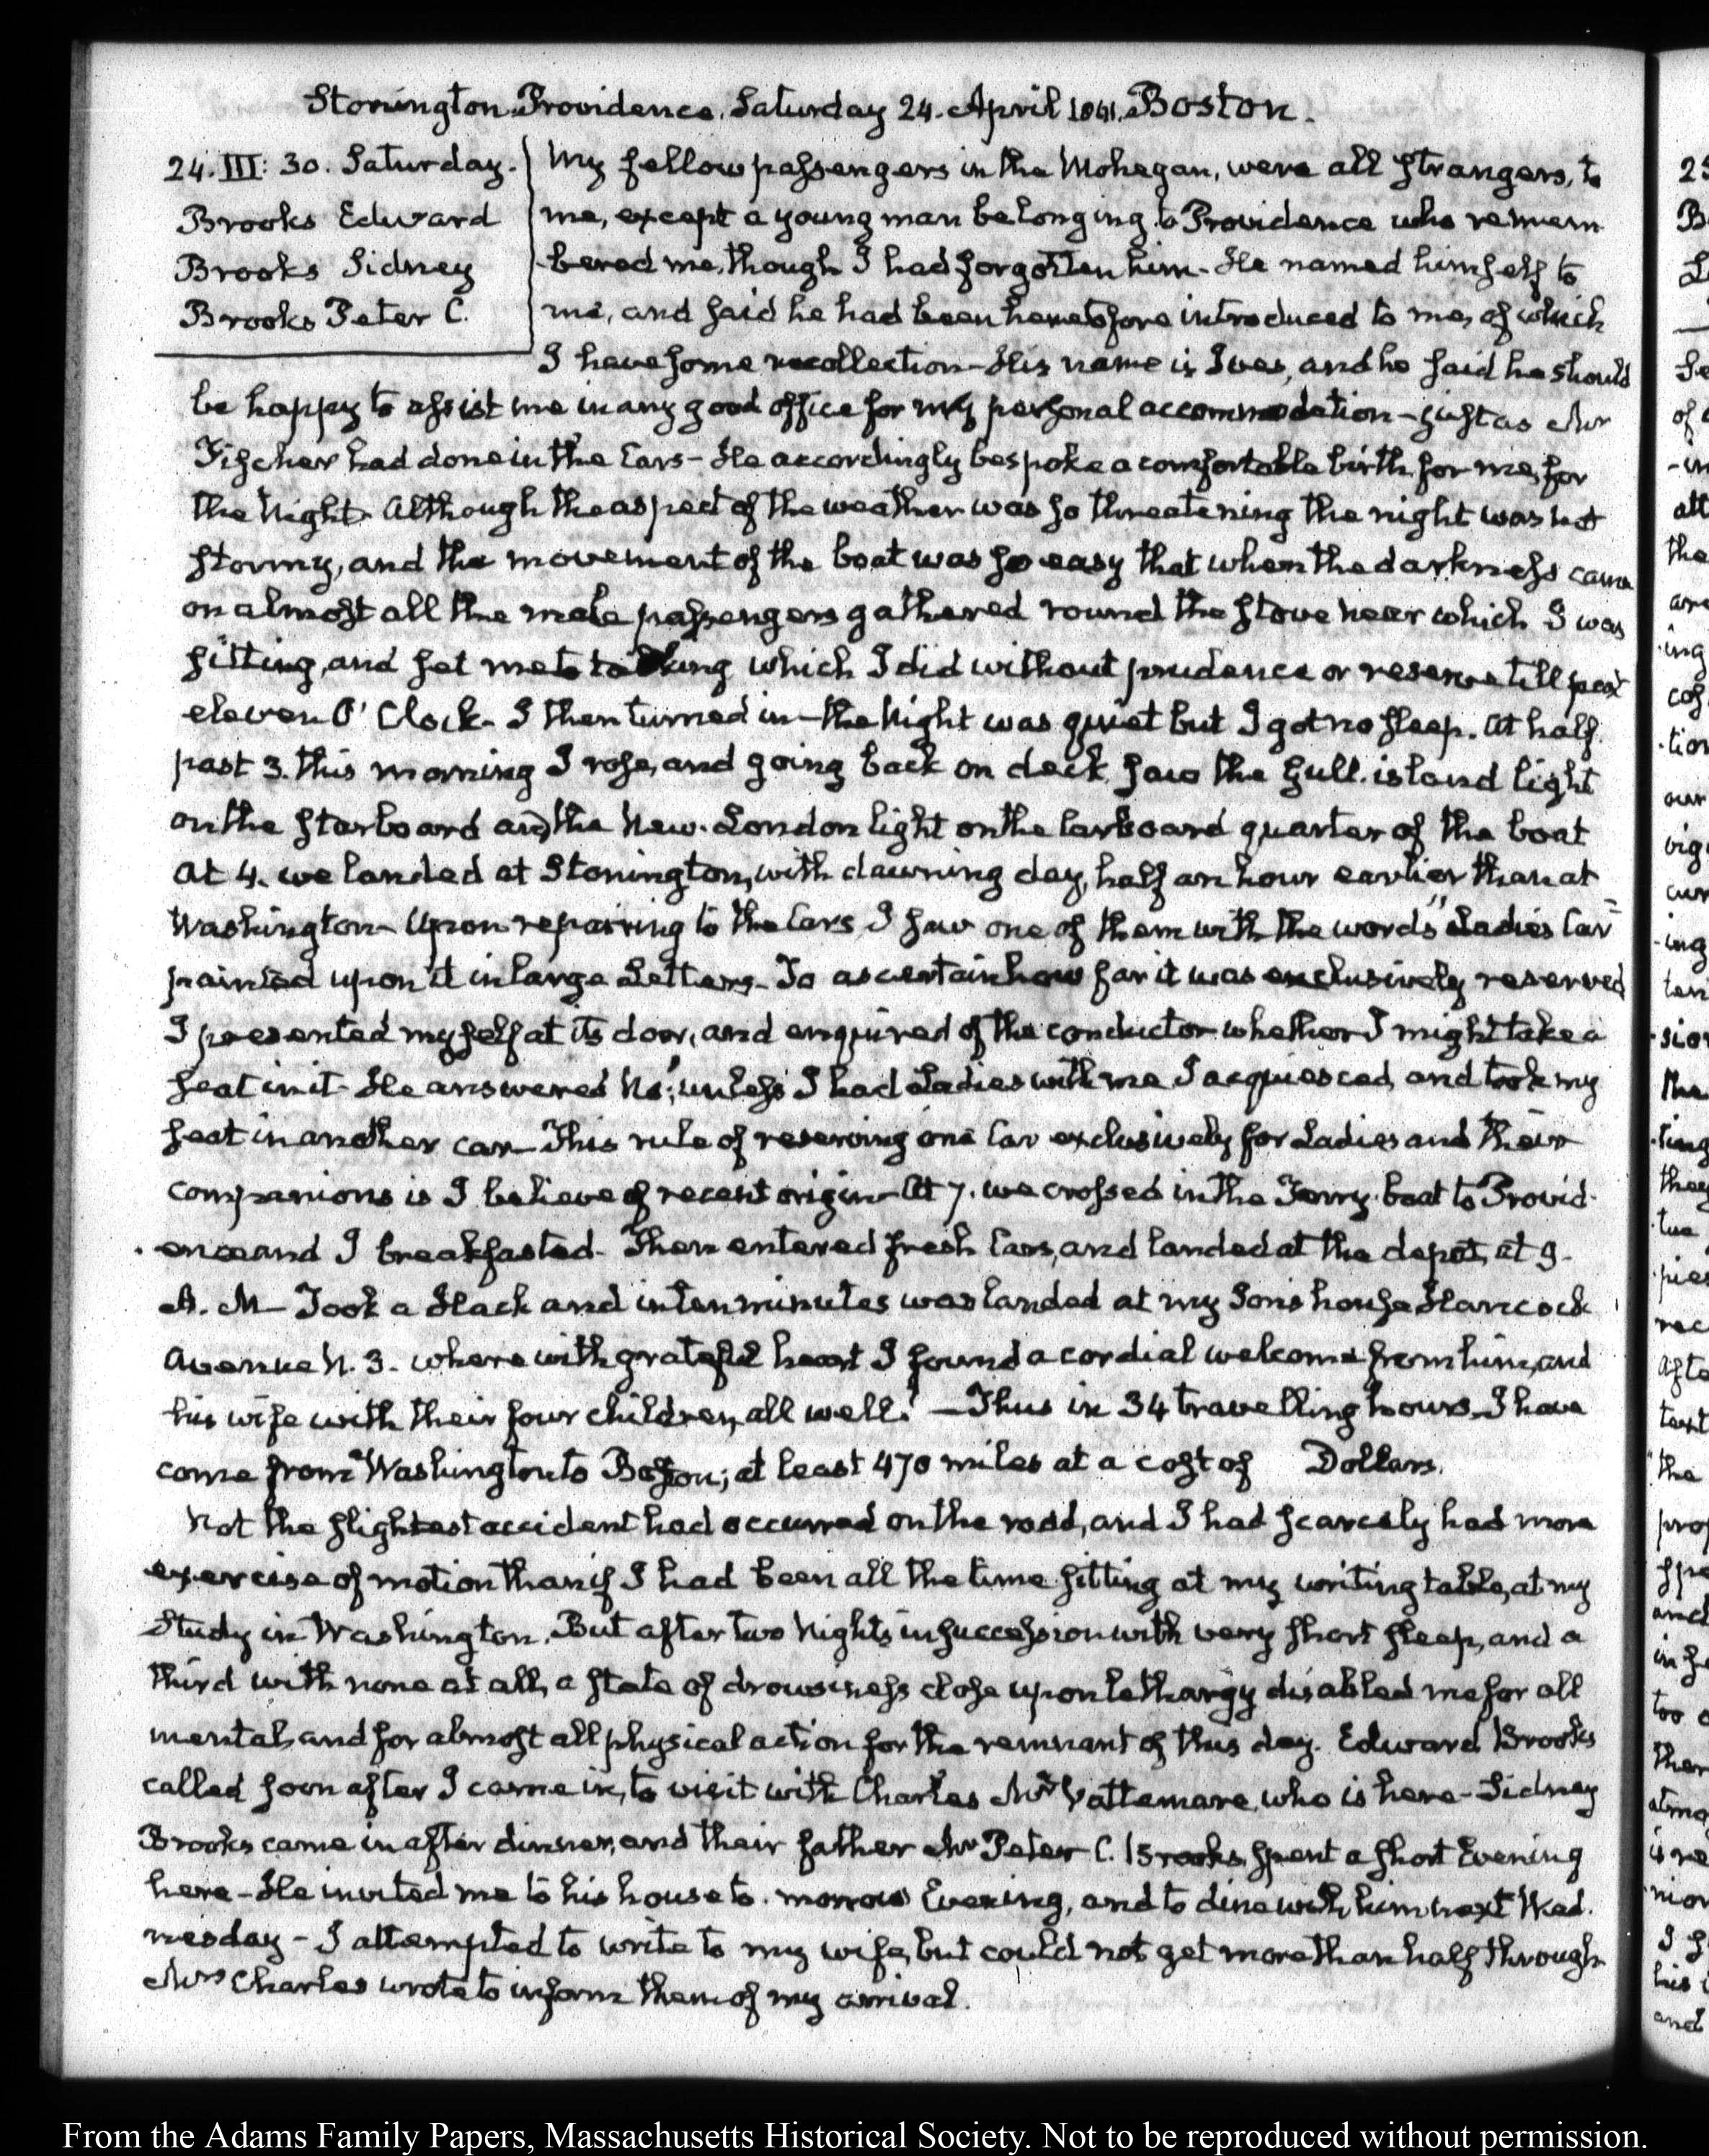 Stonington Providence. Saturday 24. April 1841. Boston.
24. III: 30. Saturday.
Brooks Edward
Brooks Sidney
Brooks Peter C.
My fellow passengers in the Mohegan, were all strangers, to
me, except a young man belonging to Providence who remem
bered me, though I had forgotten him- He named himself to
me, and said he had been heretofore introduced to me, of which
I have some recollection- His name is Ives, and he said he should
be happy to assist me in any good office for my personal accommodation- just as Mr
Fischer had done in the Cars- He accordingly bespoke a comfortable birth for me, for
the Night- Although the aspect of the weather was so threatening the night was not
stormy, and the movement of the boat was so easy that when the darkness came
on almost all the male passengers gathered round the stove near which I was
sitting, and set me to talking which I did without prudence or reserve till past
eleven O' Clock- I then turned in- the Night was quiet but I got no sleep. At half
past 3. this morning I rose, and going back on deck saw the Gull-island light
on the starboard and the New-London light on the larboard quarter of the boat
At 4. we landed at Stonington, with dawning day, half an hour earlier than at
Washington- Upon repairing to the Cars, I saw one of them with the words "Ladies Car"
painted upon it in large Letters- To ascertain how far it was exclusively reserved
I presented myself at its door, and enquired of the conductor whether I might take a
seat in it- He answered No; unless I had Ladies with me I acquiesced, and took my
seat in another car- This rule of reserving one Car exclusively for Ladies and their
companions is I believe of recent origin- At 7. we crossed in the Ferry-boat to Provid-
-ence and I breakfasted- Then entered fresh Cars, and landed at the depot, at 9-
A. M- Took a Hack and in ten minutes was landed at my Son's house Hancock
Avenue N. 3. where with grateful heart I found a cordial welcome from him, and
his wife with their four children, all well! -Thus in 34 travelling hours I have
come from Washington to Boston; at least 470 miles at a cost of Dollars.
Not the slightest accident had occurred on the road, and I had scarcely had more
exercise of motion than if I had been all the time sitting at my writing table, at my
Study in Washington. But after two Nights in succession with very short sleep, and a
third with none at all, a state of drowsiness close upon lethargy disabled me for all
mental, and for almost all physical action for the remnant of this day. Edward Brooks
called soon after I came in, to visit with Charles Mr Vattemare, who is here- Sidney
Brooks came in after dinner, and their father Mr Peter C. Brooks spent a short Evening
here- He invited me to his house to-morrow Evening, and to dine with him next Wed-
nesday- I attempted to write to my wife, but could not get more than half through-
Mrs Charles wrote to inform them of my arrival.
From the Adams Family Papers, Massachusetts Historical Society. Not to be reproduced without permission.